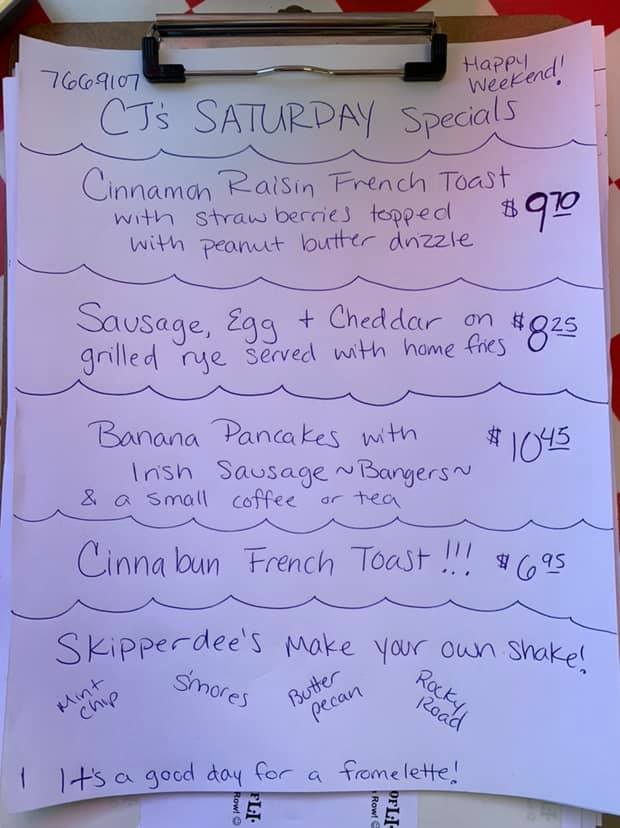 7669107
Happy
Weekend!
CJ's SATURDAY Specials
Cinnamon Raisin French Toast
with strawberries topped $9.70
with peanut butter drizzle
Sausage, Egg + Cheddar on $8.25
grilled rye served with home fries
Banana Pancakes with $10.45
Irish Sausage ~Bangers~
& a small coffee or tea
Cinnabun French Toast!!! $6.95
Skipperdee's Make your own shake!
Mint
chip
S'mores
Butter
pecan
Rocky
Road
It's a good day for a fromelette!